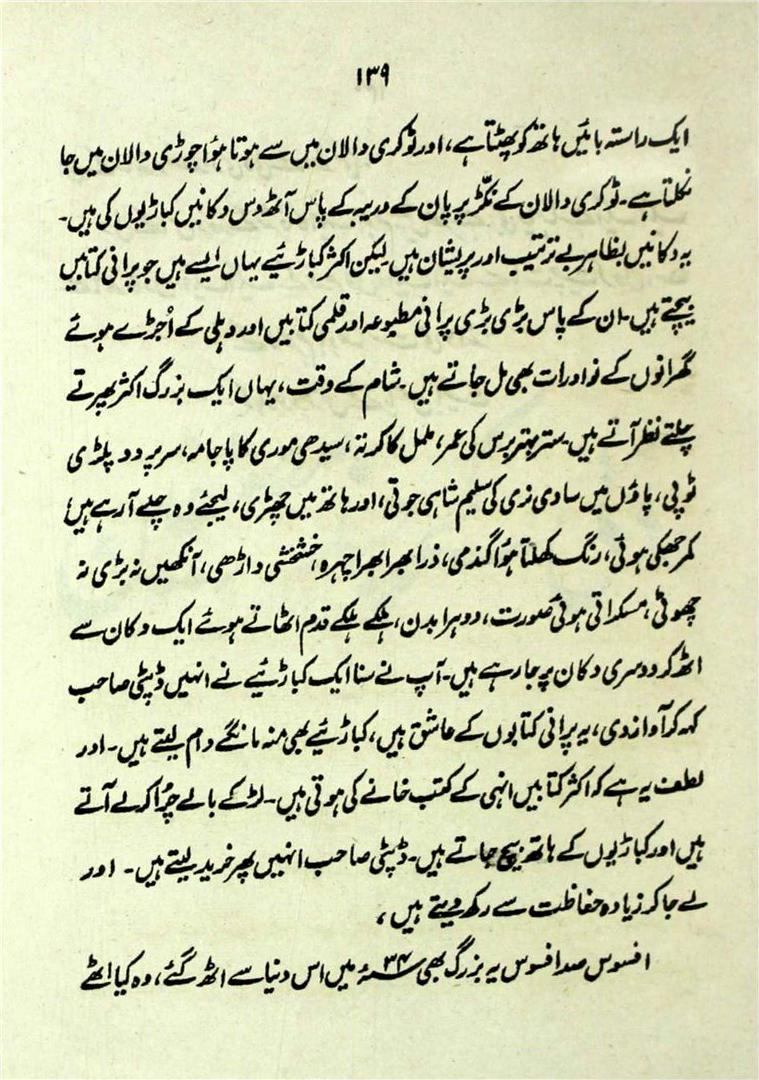 ۱۳۹
ایک راستہ بائیں ہاتھ کو پھٹتا ہے، اور ٹوکری والان میں سے ہوتا ہؤا چوڑی والان میں جا
نکلتا ہے۔ ٹوکری والان کے نکّڑ پر پان کے دریبہ کے پاس آٹھ دس دکانیں کباڑیوں کی ہیں۔
یہ دکانیں بظاہر بے ترتیب اور پریشان ہیں لیکن اکثر کباڑیئے یہاں ایسے ہیں جو پرانی کتابیں
بیچتے ہیں۔ ان کے پاس بڑی بڑی پرانی مطبوعہ اور قلمی کتابیں اور دہلی کے اُجڑے ہوئے
گھرانوں کے نوادرات بھی مل جاتے ہیں۔ شام کے وقت، یہاں ایک بزرگ اکثر پھرتے
چلتے نظر آتے ہیں۔ ستر بہتر برس کی عمر، ململ کا کرتہ، سیدھی موری کا پاجامہ، سر پر دو پلڑی
ٹوپی، پاؤں میں سادی نری کی سلیم شاہی جوتی، اور ہاتھ میں چھڑی، لیجئے وہ چلے آرہے ہیں
کمر جھکی ہوئی، رنگ کھلتا ہؤا گندمی، ذرا بھرا بھرا چہرہ، خشخشی داڑھی، آنکھیں نہ بڑی نہ
چھوٹی، مسکراتی ہوئی صورت، دوہرا بدن، ہلکے ہلکے قدم اٹھاتے ہوئے ایک دکان سے
اٹھ کر دوسری دکان پر جارہے ہیں۔ آپ نے سنا ایک کباڑیئے نے انہیں ڈپٹی صاحب
کہہ کر آواز دی، یہ پرانی کتابوں کے عاشق ہیں، کباڑیئے بھی منہ مانگے دام لیتے ہیں۔ اور
لطف یہ ہے کہ اکثر کتابیں انہی کے کتب خانے کی ہوتی ہیں۔ لڑکے بالے چُرا کر لے آتے
ہیں اور کباڑیوں کے ہاتھ بیچ جاتے ہیں۔ ڈپٹی صاحب انہیں پھر خرید لیتے ہیں۔ اور
لے جا کر زیادہ حفاظت سے رکھ دیتے ہیں،
افسوس صد افسوس یہ بزرگ بھی ۳۴ء؁ میں اس دنیا سے اٹھ گئے، وہ کیا اٹھے